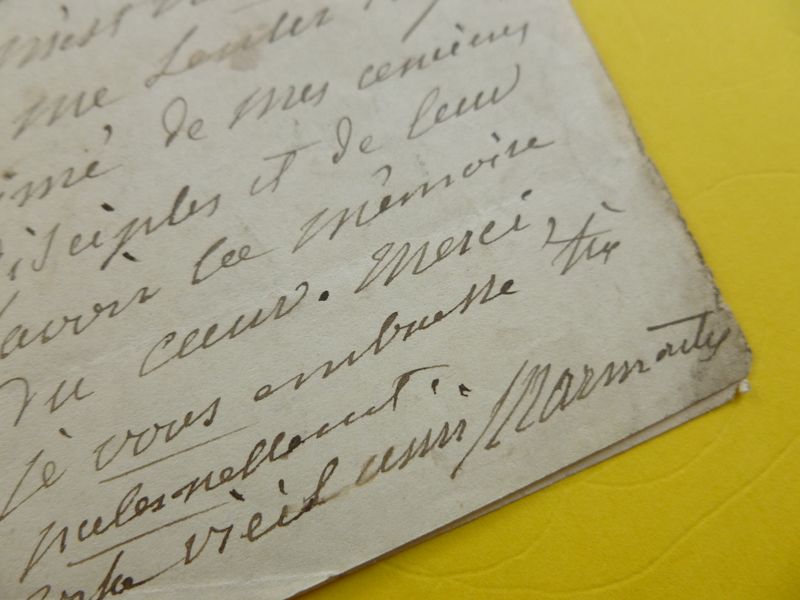 me
imé de mes anciens
disciples et de leur
avoir la mémoire
du cœur. Merci,
je vous embrasse très
paternellement.
votre vieil ami Marmontel